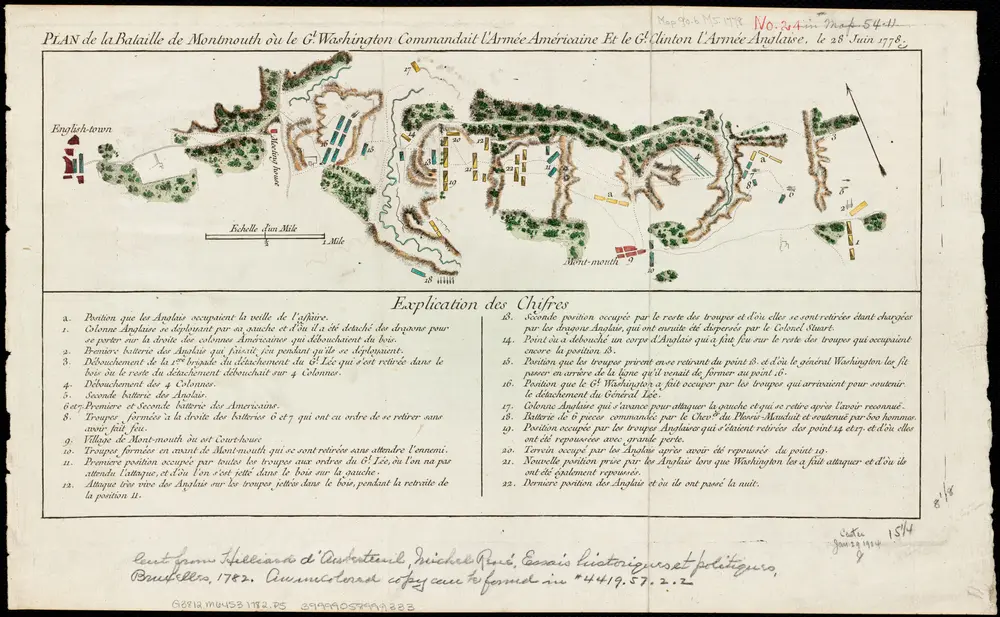 Map 90.6 M5 1778
No. 24 in Map 54.11
PLAN de la Bataille de Montmouth òu le Gl. Washington Commandait l'Armée Américaine Et le Gl. Clinton l'Armée Anglaise, le 28 Juin 1778.
English-town
Meeting house
Echelle d'un Mile
1 Mile
Mont-mouth
17
16
15
14
13
20
12
19
21
22
11
18
a
4
3
5
6
7
8
9
10
2
1
Explication des Chifres
a. Position que les Anglais occupaient la veille de l'affaire.
1. Colonne Anglaise se déployant par sa gauche et d'òu il a été detaché des dragons pour
se porter sur la droite des colonnes Américaines qui débouchaient du bois.
2. Premiere batterie des Anglais qui faisait feu pendant qu'ils se déployaient.
3. Débouchement de la 1ere brigade du détachement du Gl. Lée qui s'est retirée dans le
bois òu le reste du détachement débouchait sur 4 Colonnes.
4. Débouchement des 4 Colonnes.
5. Seconde batterie des Anglais.
6 et 7. Premiere et Seconde batterie des Americains.
8. Troupes formées à la droite des batteries 6 et 7 qui ont eu ordre de se retirer sans
avoir fait feu.
9. Village de Mont-mouth òu est Court-house
10. Troupes formées en avant de Mont-mouth qui se sont retirées sans attendre l'ennemi.
11. Premiere position occupée par toutes les troupes aux ordres du Gl. Lée, òu l'on na pas
attendu l'attaque, et d'òu l'on s'est jetté dans le bois sur la gauche.
12. Attaque très vive des Anglais sur les troupes jettées dans le bois, pendant la retraite de
la position 11.
13. Seconde position occupée par le reste des troupes et d'òu elles se sont retirées étant chargées
par les dragons Anglais, qui ont ensuite été dispersés par le Colonel Stuart.
14. Point òu a débouché un corps d'Anglais qui a fait feu sur le reste des troupes qui occupaient
encore la position 13.
15. Position que les troupes prirent en se retirant du point 13. et d'òu le général Washington les fit
passer en arrière de la ligne qu'il venait de former au point 16.
16. Position que le Gl. Washington a fait occuper par les troupes qui arrivaient pour soutenir
le détachement du Général Lée.
17. Colonne Anglaise qui s'avance pour attaquer la gauche et qui se retire après l'avoir reconnue.
18. Batterie de 6 pieces commandée par le Cher. du Plessis-Mauduit et soutenue par 500 hommes.
19. Position occupée par les troupes Anglaises qui s'étaient retirées des point 14 et 17. et d'òu elles
ont été repoussées avec grande perte.
20. Terrein occupé par les Anglais après avoir été repoussés du point 19.
21. Nouvelle position prise par les Anglais lors que Washington les a fait attaquer et d'òu ils
ont été également repoussés.
22. Derniere position des Anglais et òu ils ont passé la nuit.
8 1/8
15 1/4
Jan 29 1924
Cut from Hilliard d'Auberteuil, Michel René, Essais historiques et politiques,
Bruxelles, 1782. An uncolored copy can be found in *4419.57.2.2
G3812.M6453 1782.P5 39999059999333